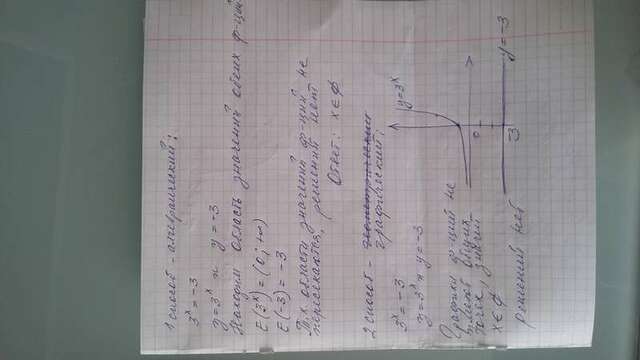 1 способ - алгебраический:
3ˣ = -3
y=3ˣ и y = -3
Находим область значений обеих ф-ций
E(3ˣ) = (0; +∞)
E(-3) = -3
Т.к. области значений ф-ций не
пересекаются, решений нет
Ответ: x ∈ ∅
2 способ - геометрический
графический:
3ˣ = -3
y=3ˣ и y = -3
Графики ф-ций не
имеют общих
точек, значит
x ∈ ∅
решений нет
y=3ˣ
0
-3
y = -3